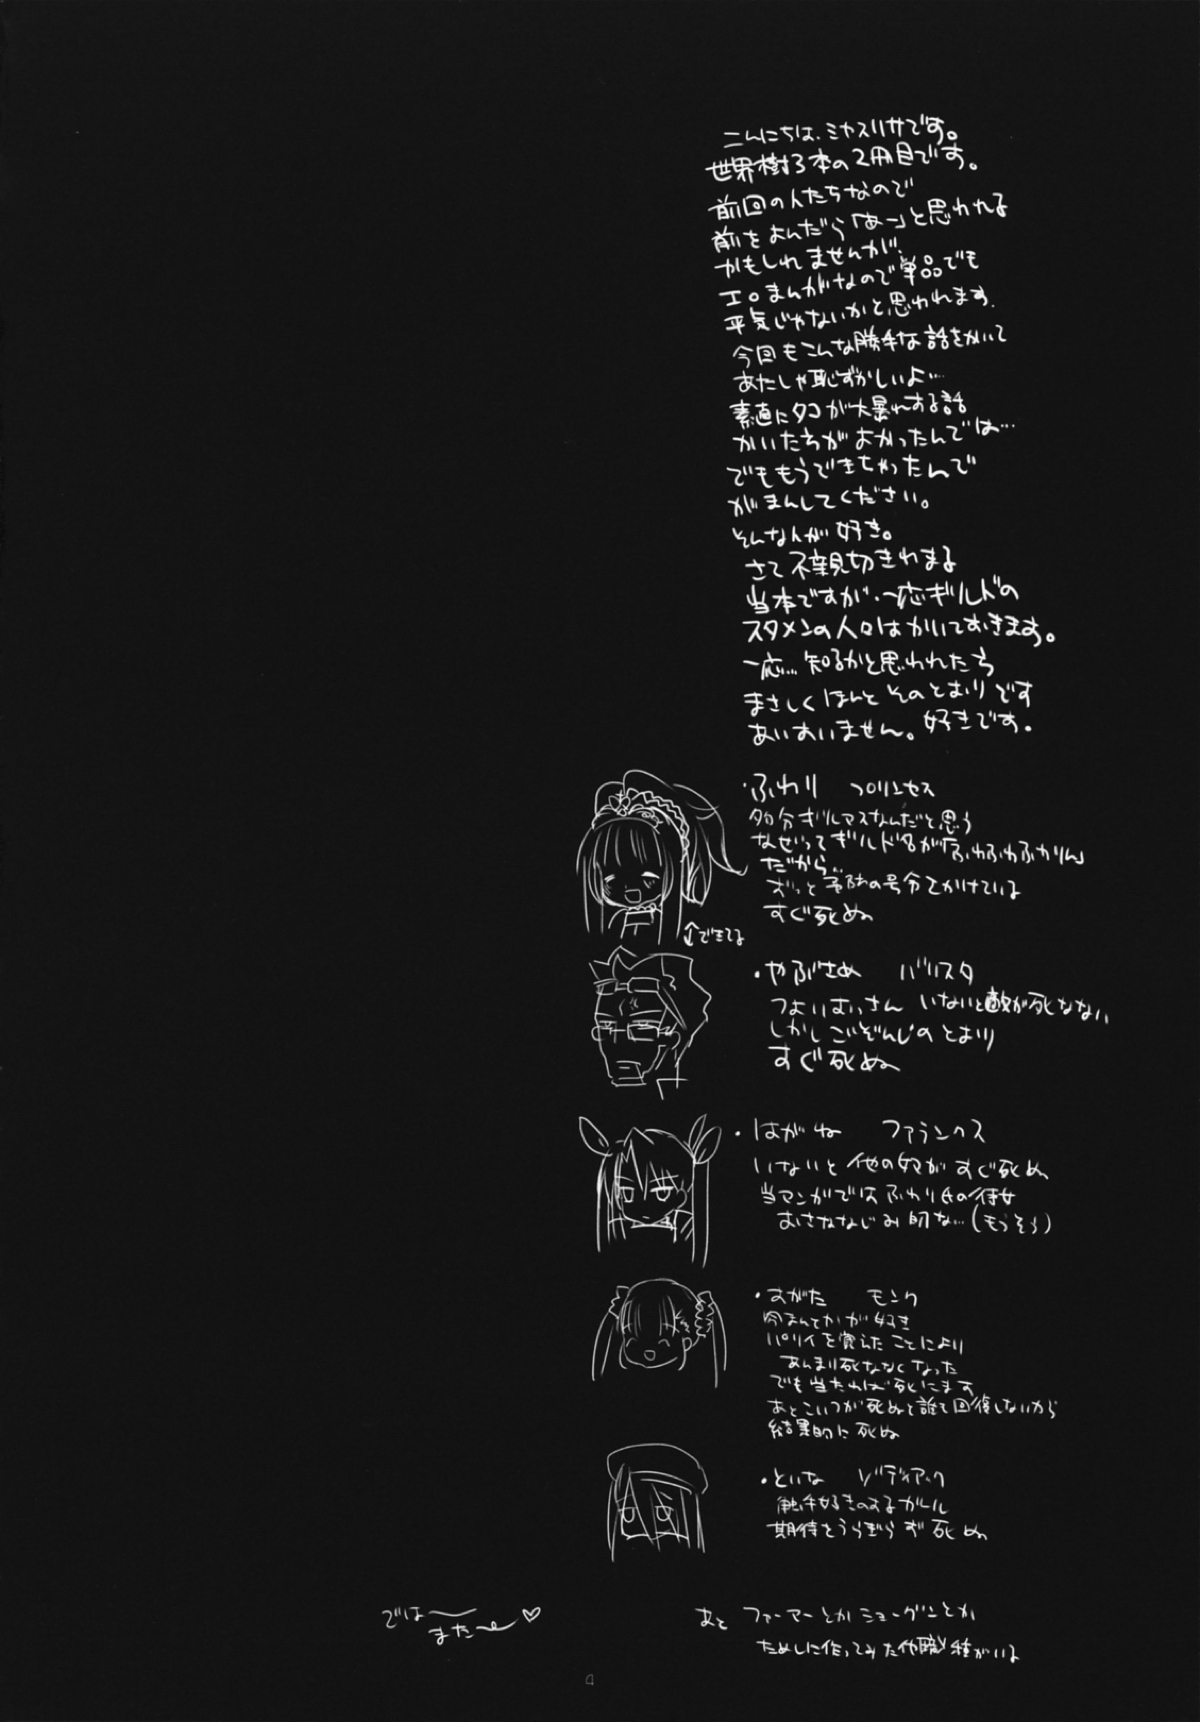 こんにちは、ミヤスリサです。
世界樹3本の2冊目です。
前回の人たちなので
前をよんだら「あー」と思われる
かもしれませんが、
エロまんがなので単品でも
平気じゃないかと思われます。
今回もこんな勝手な話をかいて
あたしゃ恥ずかしいよ…
素直にタコが大暴れする話
かいたらがよかったんでは…
でももうできちゃったんで
がまんしてください。
そんな人が好き。
さて不親切きわまる
当本ですが、一応ギルドの
スタメンの人らはかいておきます。
一応…知るかと思われたら
まさしくほんとそのとおりです
あいすいません。好きです。
・ふわり プリンセス
多分ギルマスなんだと思う
なぜってギルド名が「ふわふわふかりん」
だから…
ずっと予防の号令をかけている
すぐ死ぬ
↑↓できてる
・やぶさめ バリスタ
つよいおっさん いないと敵が死なない
しかしごぞんじのとおり
すぐ死ぬ
・はがね ファランクス
いないと他の奴がすぐ死ぬ
当マンガではふわり氏の侍女
おさななじみ的な…(もうそう)
・すがた モンク
パリイを覚えたことにより
あんまり死ななくなった
でも当たれば死にます
あとこいつが死ぬと誰も回復しないから
結果的に死ぬ
・といな ゾディアック
触手好きのするガール
期待をうらぎらず死ぬ
あと ファーマーとかショーグンとか
ためしに作ってみた他職種がいる
では
また〜♡